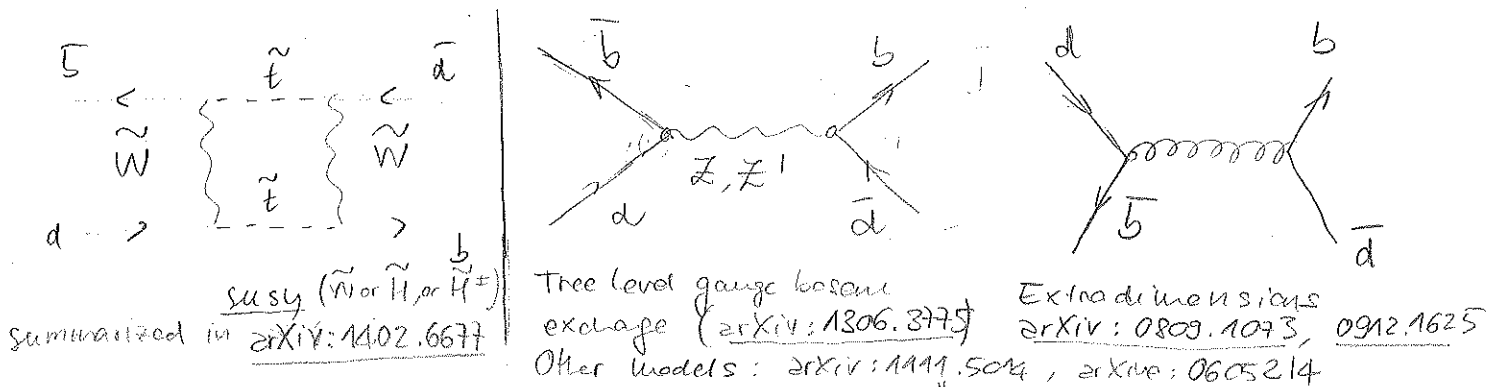 b̄ t̃ d̄
W̃ W̃
t̃
d b
susy (W̃ or H̃, or H̃±)
summarized in arXiv:1402.6677
b̄ b
Z, Z'
d d̄
Tree level gauge boson
exchage (arXiv:1306.3775)
Other models: arXiv:1111.5014, arXive:0605214
d b
b̄ d̄
Extradimensions
arXiv: 0809.1073, 0912.1625